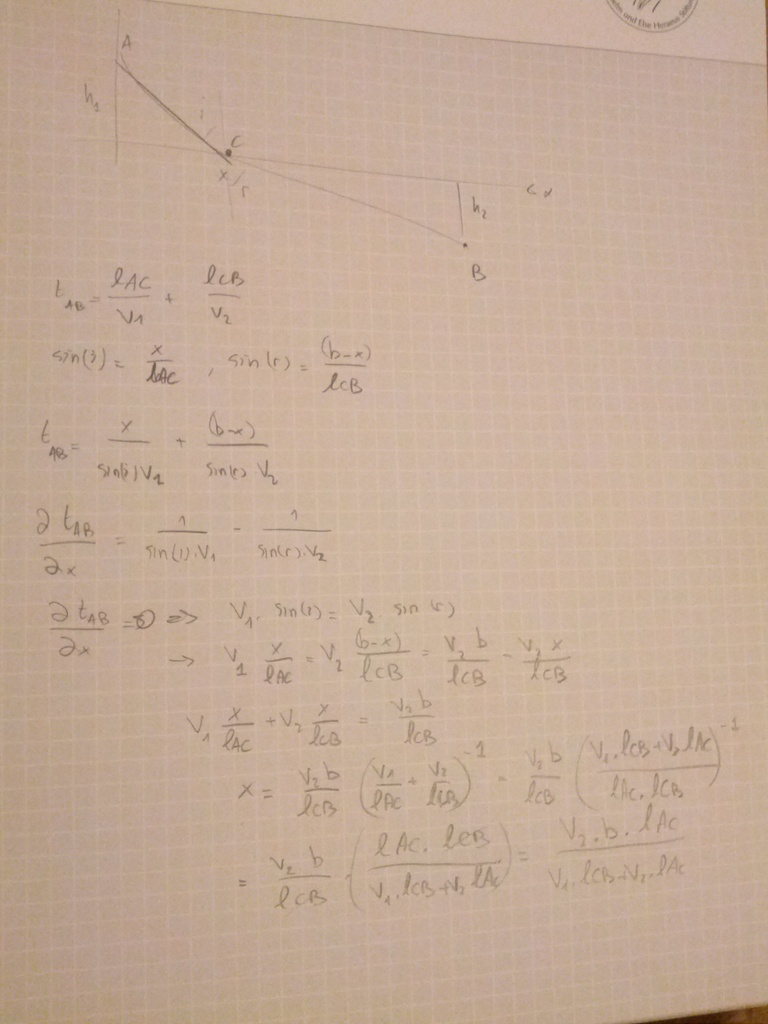 A
h₁
i
C
x
r
h₂
x
B
t_AB = lAC/V1 + lCB/V2
sin(i) = x/lAC , sin(r) = (b-x)/lCB
t_AB = x/(sin(i)V1) + (b-x)/(sin(r) V2)
∂t_AB/∂x = 1/(sin(i).V1) - 1/(sin(r).V2)
∂t_AB/∂x = 0 => V1. sin(i) = V2 sin(r)
→ V1 x/lAC = V2 (b-x)/lCB = V2 b/lCB - V2 x/lCB
V1 x/lAC + V2 x/lCB = V2 b/lCB
x = V2 b/lCB (V1/lAC + V2/lCB)⁻¹ = V2 b/lCB ((V1.lCB+V2 lAC)/(lAC.lCB))⁻¹
= V2 b/lCB . (lAC. lCB/(V1.lCB+V2 lAC)) = V2.b.lAC/(V1.lCB+V2.lAC)